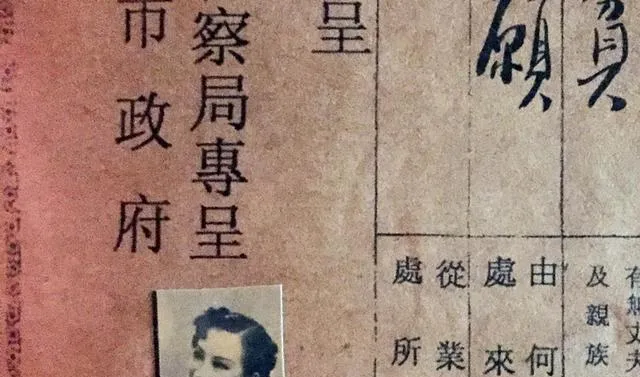 願
有無丈夫
及親族
由何
處來
從業
處所
呈
察局專呈
市政府